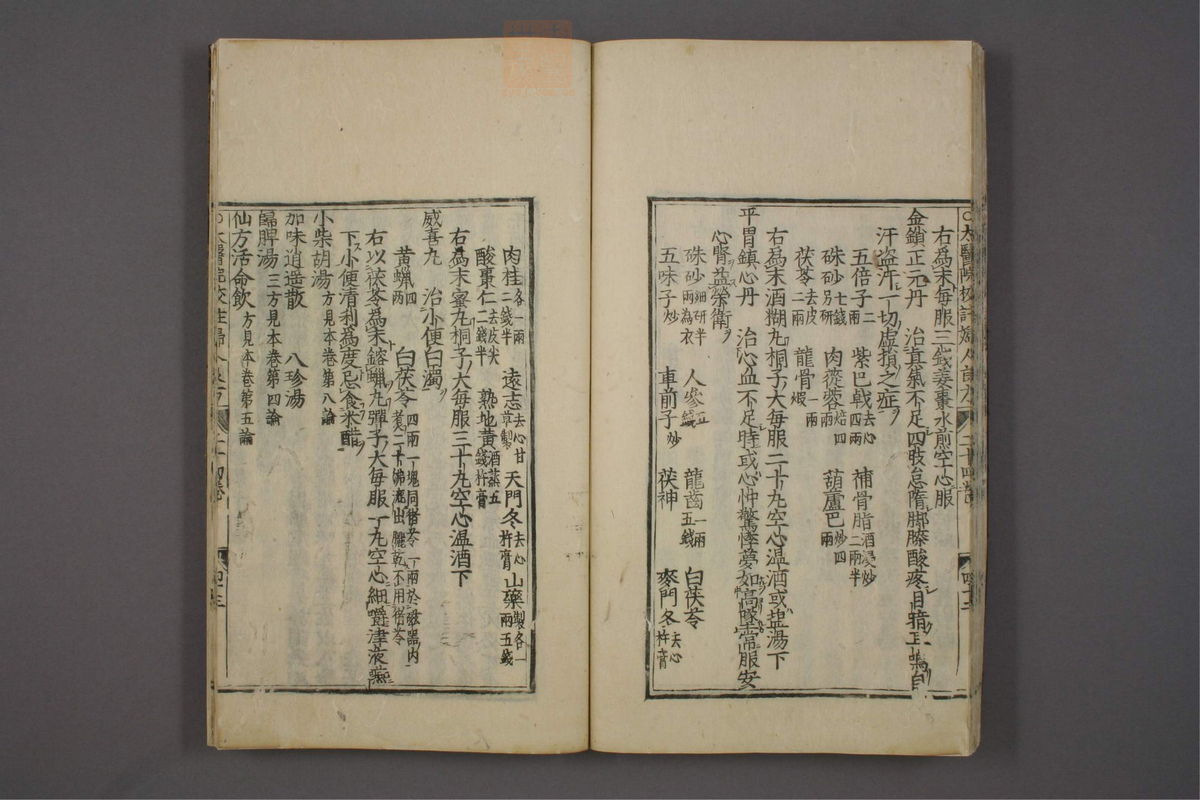 ○太醫院校註婦人良方　二十四卷　四十三
右爲末每服三錢姜棗水煎空心服
金鎖正元丹　治真氣不足四肢怠惰脚膝酸疼目暗耳鳴自
汗盗汗一切虛損之症
五倍子二兩　紫巴戟去心四兩　補骨脂酒浸炒二兩半
硃砂七錢別研　肉蓯蓉焙四兩　葫蘆巴炒四兩
茯苓去皮二兩　龍骨煅一兩
右爲末酒糊丸桐子大每服二十丸空心温酒或盐湯下
平胃鎮心丹　治心血不足時或心忡驚悸夢如高墜常服安
心腎益榮衛
硃砂細研半兩為衣　人參五錢　龍齒一兩五錢　白茯苓
五味子炒　車前子炒　茯神　麥門冬去心杵膏
肉桂各一兩二錢半　遠志去心甘草製　天門冬去心杵膏　山藥製各一兩五錢
酸棗仁去皮尖二錢半　熟地黄酒蒸五錢杵膏
右爲末蜜丸桐子大每服三十丸空心温酒下
威喜丸　治小便白濁
黄蝋四兩　白茯苓四兩一塊同猪苓一兩於磁器内煮二十沸瀝出曬乾不用猪苓
右以茯苓爲末鎔蝋丸彈子大每服一丸空心細嚼津液嚥
下小便清利爲度忌食米醋
小柴胡湯方見本卷第八論
加味逍遥散　八珍湯
歸脾湯三方見本卷第四論
仙方活命飲方見本卷第五論
○太醫院校註婦人良方